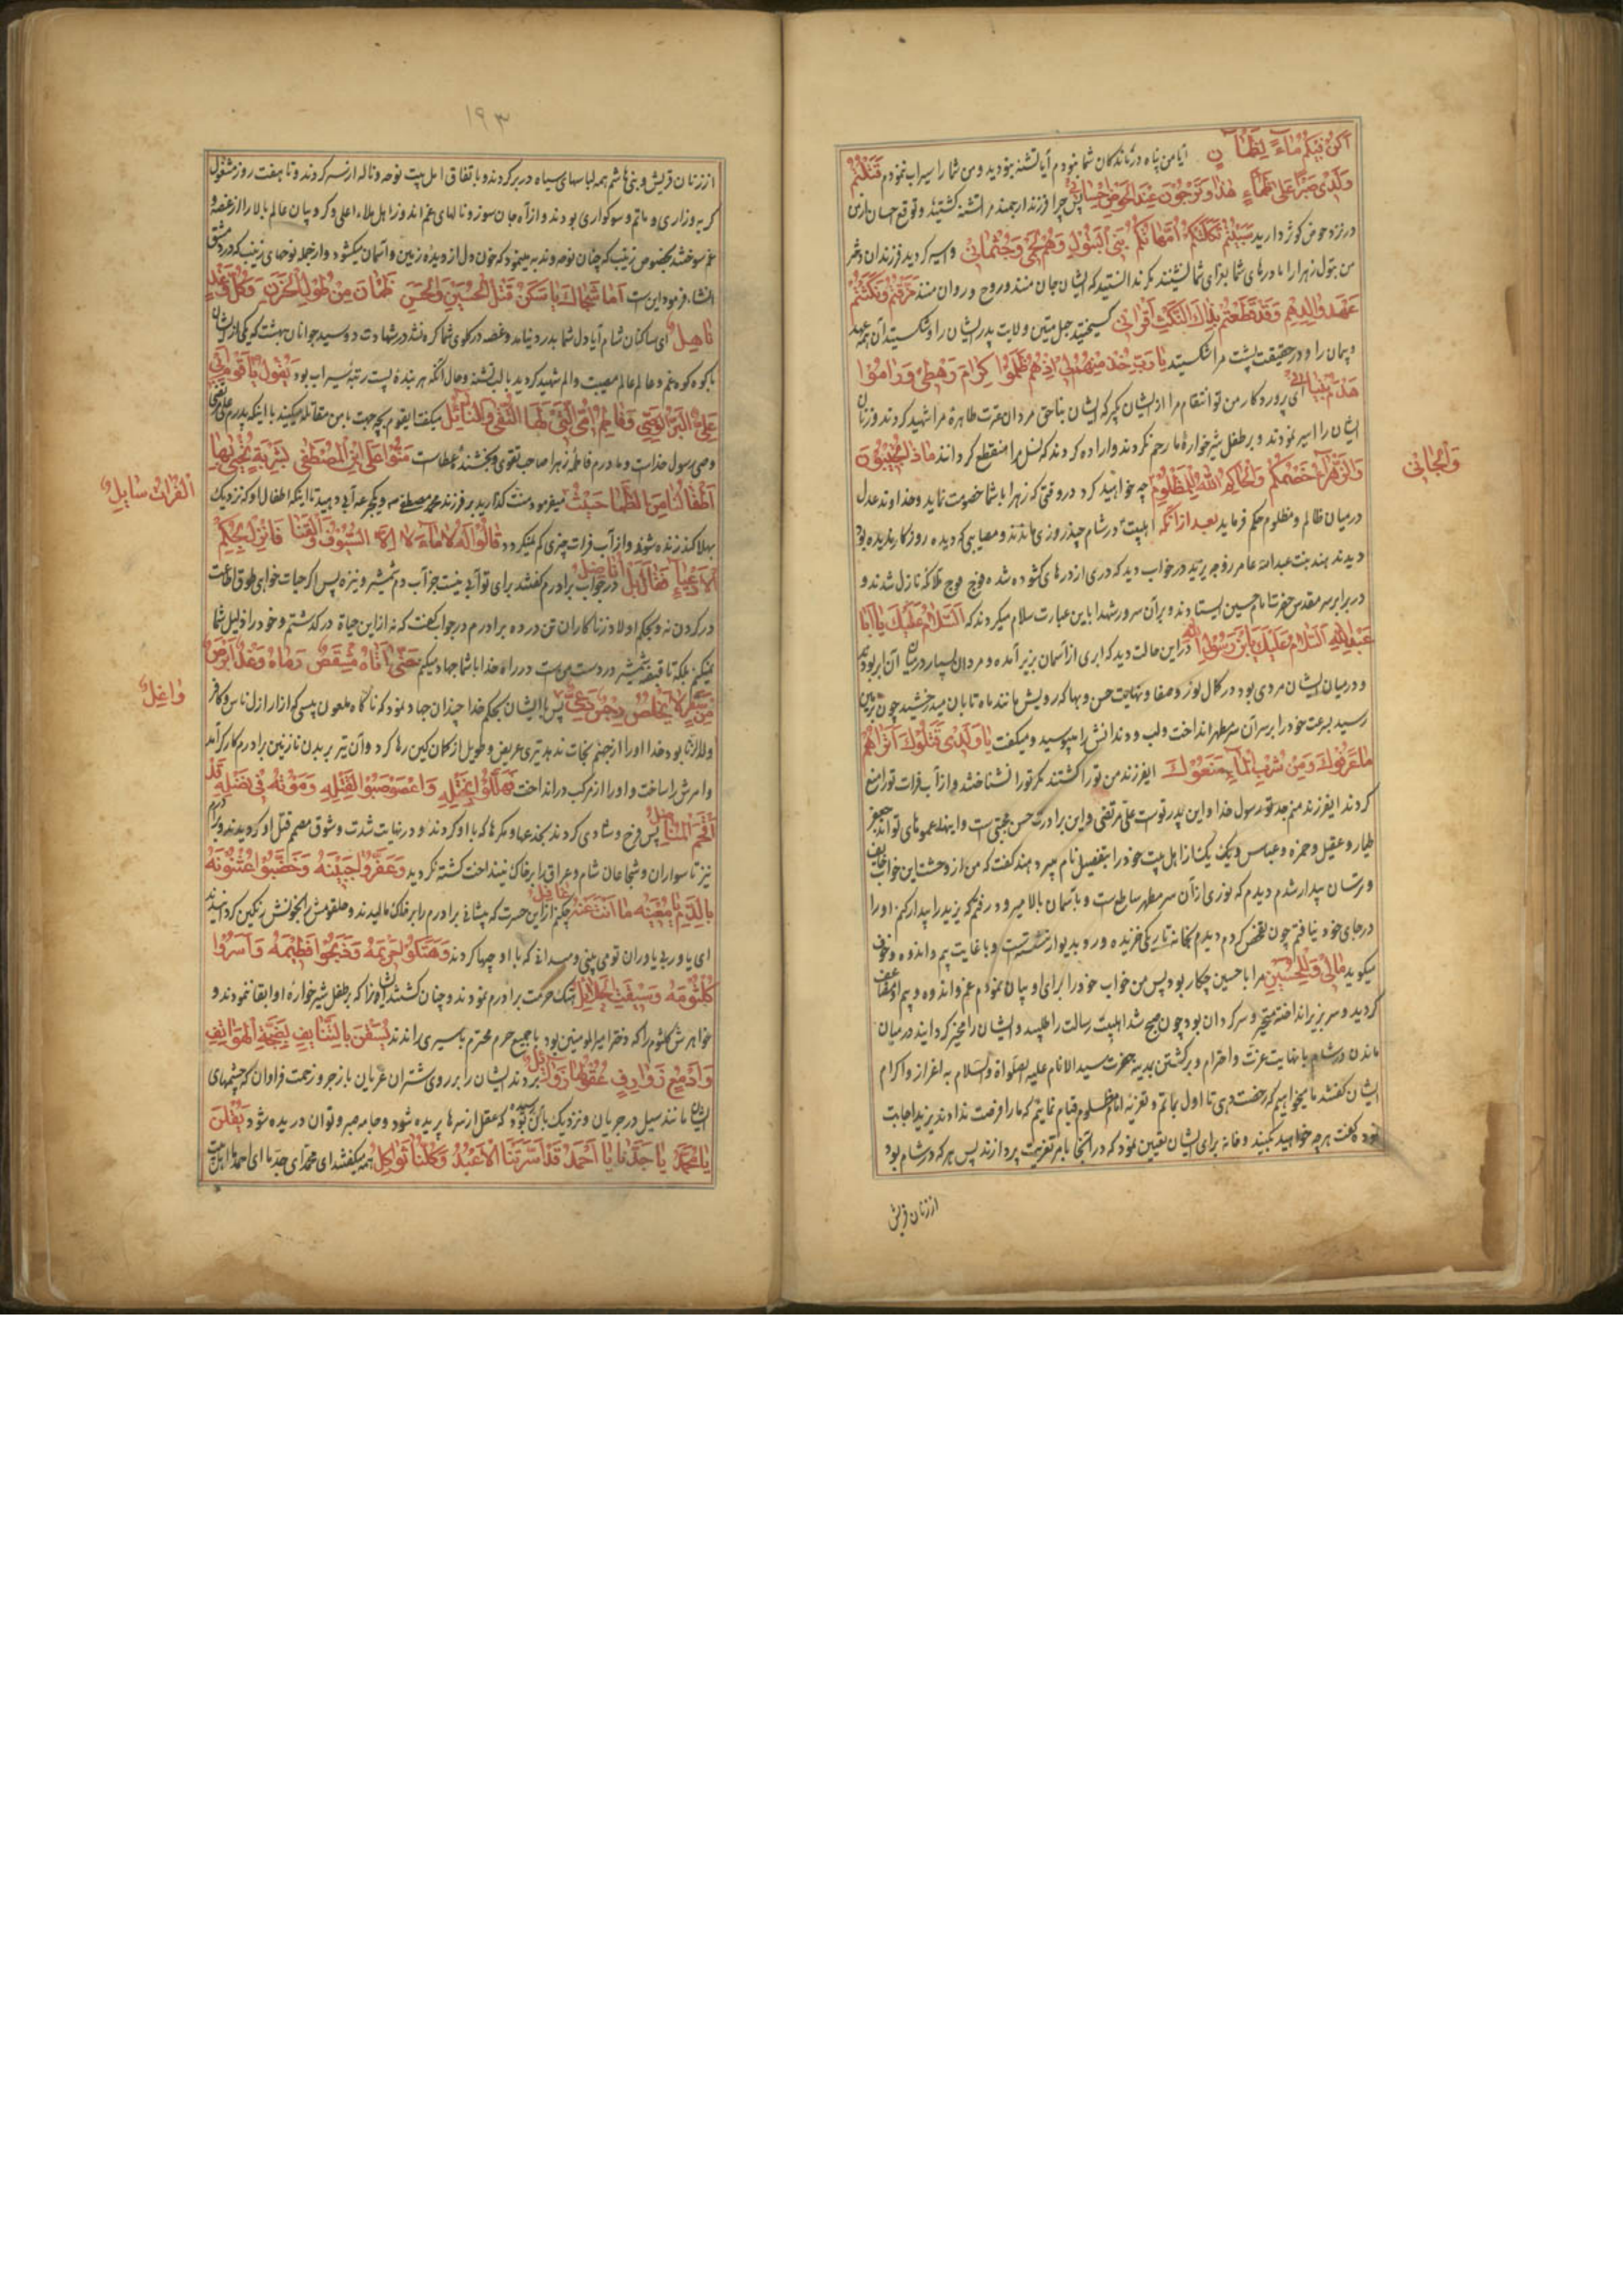 اكن فيكم ماء لظمآن آیا من پناه درماندکان شما نبودم آیا تشنه نبودید و من شما را سیراب نمودم قتلتم
ولدي صبرا على ظماء هذا وترجون عند الحوض احساني پس چرا فرزند ارجمند مرا تشنه کشتید و توقع احسان از من
در نزد حوض کوثر دارید سبيتم ثكلتكم امهاتكم بني البتول وهم لحمي وجثماني و اسیر کردید فرزندان دختر
من بتول زهرا را مادرهای شما بعزای شما نشینند مکر ندانستید که ایشان جان منند و روح و روان منند خرقتم ونكثتم
عهد والدهم وقد قطعتم بذاك النكث اقراني کسیختید حبل متین ولایت پدر ایشان را و شکستید آن همه عهد
و پیمان را و در حقیقت پشت مرا شکستید يا رب خذ منهم لي اذ هم ظلموا كرام رهطي وراموا
هدم بنياني ای پروردکار من تو انتقام مرا از ایشان بکیر که ایشان بناحق مردان عترت طاهره مرا شهید کردند و زنان
ایشان را اسیر نمودند و بر طفل شیرخواره ما رحم نکردند و اراده کردند که نسل مرا منقطع کردانند ماذا تجيبون
والزهراء خصمكم والحاكم الله للمظلوم چه خواهید کرد در وقتی که زهرا با شما خصومت نماید و خداوند عدل
والجاني
در میان ظالم و مظلوم حکم فرماید بعد از آنکه اهلبیت در شام چند روزی ماندند و مصایبی که دیده روزکار ندیده بود
دیدند هند بنت عبدالله عامر زوجه یزید در خواب دید که دری از درهای کشوده شده فوج فوج ملائکه نازل شدند و
در برابر سر مقدس حضرت امام حسین ایستادند و بر آن سرور شهدا باین عبارت سلام میکردند که السلام عليك يا ابا
عبد الله السلام عليك يابن رسول الله در این حالت دید که ابری از آسمان بزیر آمده و مردان بسیار در میان آن ابر بودند
و در میان ایشان مردی بود در کمال نور و صفا و نهایت حسن و بها که رویش مانند ماه تابان میدرخشید چون بزمین
رسید بسرعت خود را بر سر آن سر مطهر انداخت و لب و دندانش را میبوسید و میکفت يا ولدي قتلوك اتراهم
ما عرفوك ومن شرب الماء منعوك ایفرزند من تو را کشتند مکر تو را نشناختند و از آب فرات تو را منع
کردند ایفرزند منم جد تو رسول خدا و این پدر تو است علی مرتضی و این برادرت حسن مجتبی است و اینها عموهای تواند جعفر
طیار و عقیل و حمزه و عباس و یک یک را از اهل بیت خود را بتفصیل نام میبرد هند کفت که من از دهشت این خواب خایف
و ترسان بیدار شدم دیدم که نوری از آن سر مطهر ساطع است و بآسمان بالا میرود رفتم که یزید را بیدار کنم او را
در جای خود نیافتم چون تفحص کردم دیدم که بخانه تاریکی خزیده و رو بدیوار نشسته است و با غایت بیم و اندوه و خوف
میکوید مالي وللحسين مرا با حسین چکار بود پس من خواب خود را برای او بیان نمودم غم و اندوه و بیم او مضاعف
کردید و سر بزیر انداخته متحیر و سرکردان بود چون صبح شد اهلبیت رسالت را طلبید و ایشان را مخیر کردانید در میان
ماندن در شام با نهایت عزت و احترام و برکشتن بمدینه حضرت سید الانام علیه الصلواة والسلام به اعزاز و اکرام
ایشان کفتند ما میخواهیم که رخصت دهی تا اول بماتم و تعزیه امام مظلوم قیام نمایم که ما را فرصت ندادند یزید اجابت
نموده کفت هرچه خواهید بکنید و خانه برای ایشان تعیین نمود که در آنجا بامر تعزیت پردازند پس هر که در شام بود
از زنان قریش
۱۹۳
از زنان قریش و بنی هاشم همه لباسهای سیاه در بر کردند و باتفاق اهل بیت نوحه و ناله از سر کردند و تا هفت روز مشغول
کریه و زاری و ماتم و سوکواری بودند و از آه جان سوز و نالهای غم اندوز اهل ملاء اعلی و کروبیان عالم بالا را از غصه و
غم سوختند بخصوص زینب که چنان نوحه و ندبه مینمود که خون دل از دیده زمین و آسمان میکشود و از جمله نوحهای زینب که در دمشق
انشاء فرمود این است اما شجاك يا سكن قتل الحسين والحسن ظمآن من طول الحزن وكل وغد
ناهل ای ساکنان شام آیا دل شما بدرد نیامد و غصه در کلوی شما کره نشد در شهادت دو سید جوانان بهشت که یکی از ایشان
با کوه کوه غم و عالم عالم مصیبت و الم شهید کردید با لب تشنه و حال آنکه هر بنده پست رتبه سیراب بود يقول يا قوم ابي
علي البر الوصي وفاطم امي التي لها التقى والنائل میکفت ایقوم بچه جهت با من مقاتله میکنید با اینکه پدرم علی مرتضی
وصی رسول خداست و مادرم فاطمه زهرا صاحب تقوی و بخشنده عطاست منوا على ابن المصطفى بشربة يحيى بها
اطفالنا من الظما حيث میفرمود منت کذارید بر فرزند محمد مصطفی و یکجرعه آبی دهید تا اینکه اطفال او که نزدیک
الفرات سايل
بهلاکتند زنده شوند و از آب فرات چیزی کم نمیکردد قالوا له لا ماء لا الا السيوف والقنا فانزل بحكم
الادعياء فقال بل اناضل در جواب برادرم کفتند برای تو آبی نیست جز آب دم شمشیر و نیزه پس اکر حیات خواهی طوق اطاعت
در کردن نه و بحکم اولاد زناکاران تن در ده برادرم در جواب کفت که نه از این حیاة در کذشتم و خود را ذلیل شما
نمیکنم بلکه تا قبضه شمشیر در دست من است در راه خدا با شما جهاد میکنم حتى اتاه مشقص رماه وغد ابرص
من سقر لا يخلص رجس دعي پس با ایشان بحکم خدا چندان جهاد نمود که ناکاه ملعون پیسی که از اراذل ناس و کافر
واغل
و ولد الزنا بود خدا او را از جهنم نجات ندهد تیری عریض و طویل از کمان کین رها کرد و آن تیر بر بدن نازنین برادرم کارکر آمد
و امرش را ساخت و او را از مرکب در انداخت فهللوا بختله واعصوصبوا لقتله وموته في نضله قد
اقحم المناضل پس فرح و شادی کردند بخدعها و مکرها که با او کردند و در نهایت شدت و شوق مصمم قتل او کردیدند و برادرم
نیز تا سواران و شجاعان شام و عراق را بر خاک نینداخت کشته نکردید وعفروا جبينه وخضبوا عثنونه
بالدم يا معينه ما انت عنه غافل چکنم از این حسرت که پیشانی برادرم را بر خاک مالیدند و حلقومش را بخونش رنکین کردانیدند
ای یاور بی یاوران تو می بینی و میدانی که با او چها کردند وهتكوا حريمه وذبحوا فطيمه واسروا
كلثومه وسيقت الحلائل هتک حرمت برادرم نمودند و چنان کشتند او را که بر طفل شیرخواره او ابقا ننمودند و
خواهرش کلثوم را که دختر امیرالمومنین بود با جمیع حرم محترم باسیری راندند يسقن بالتنايف بضجة الهواتف
وادمع ذوارف عقولها زوائل بردند ایشان را بر روی شتران عریان با زجر و زحمت فراوان که چشمهای
ایشان مانند سیل در جریان و نزدیک بآن رسیده بود که عقل از سرها پریده شود و جامه صبر و توان دریده شود يقلن
يا محمد يا جدنا يا احمد قد اسرتنا الاعبد وكلنا ثواكل همه میکفتند ای محمد ای جد ما ای احمد ما اهل بیت